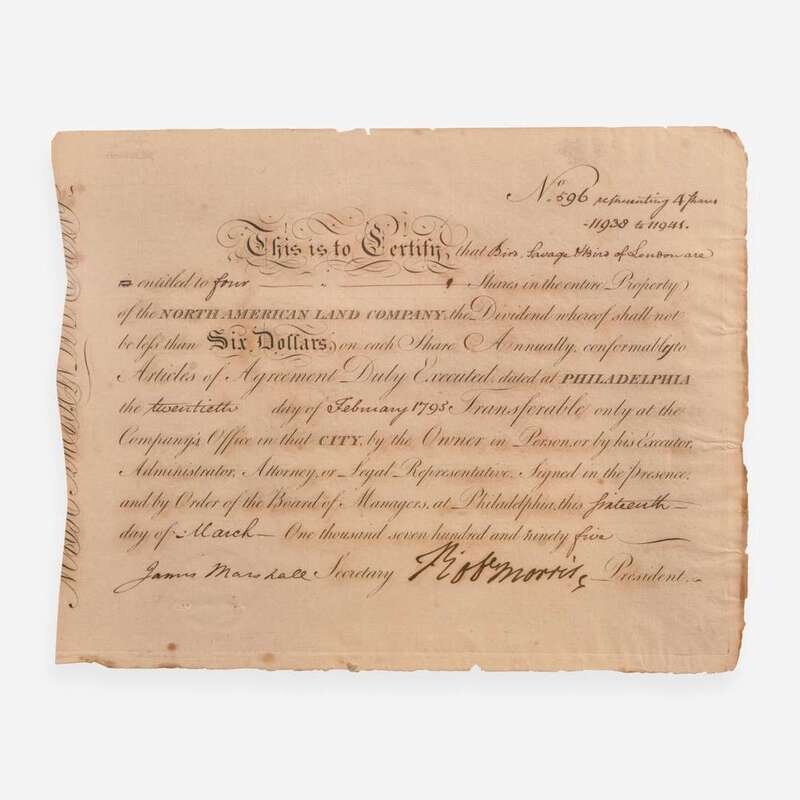 No. 596 representing 4 Shares
11938 to 11941.
This is to Certify, that Bird, Savage & Bird of London are
is entitled to four Shares in the entire Property
of the NORTH AMERICAN LAND COMPANY, the Dividend whereof shall not
be less than Six Dollars, on each Share Annually, conformably to
Articles of Agreement Duly Executed, dated at PHILADELPHIA
the twentieth day of February 1795 Transferable only at the
Company's Office in that CITY, by the Owner in Person, or by his Executor,
Administrator, Attorney, or Legal Representative. Signed in the presence,
and by Order of the Board of Managers, at Philadelphia, this sixteenth
day of March One thousand seven hundred and ninety five
James Marshall Secretary Robt Morris, President.